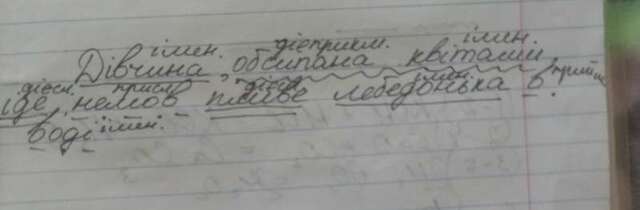 імен. дієприкм. імен.
Дівчина, обсипана квітами,
дієсл. присл. дієсл. імен. прийм.
іде, немов пливе лебедонька в
воді імен.